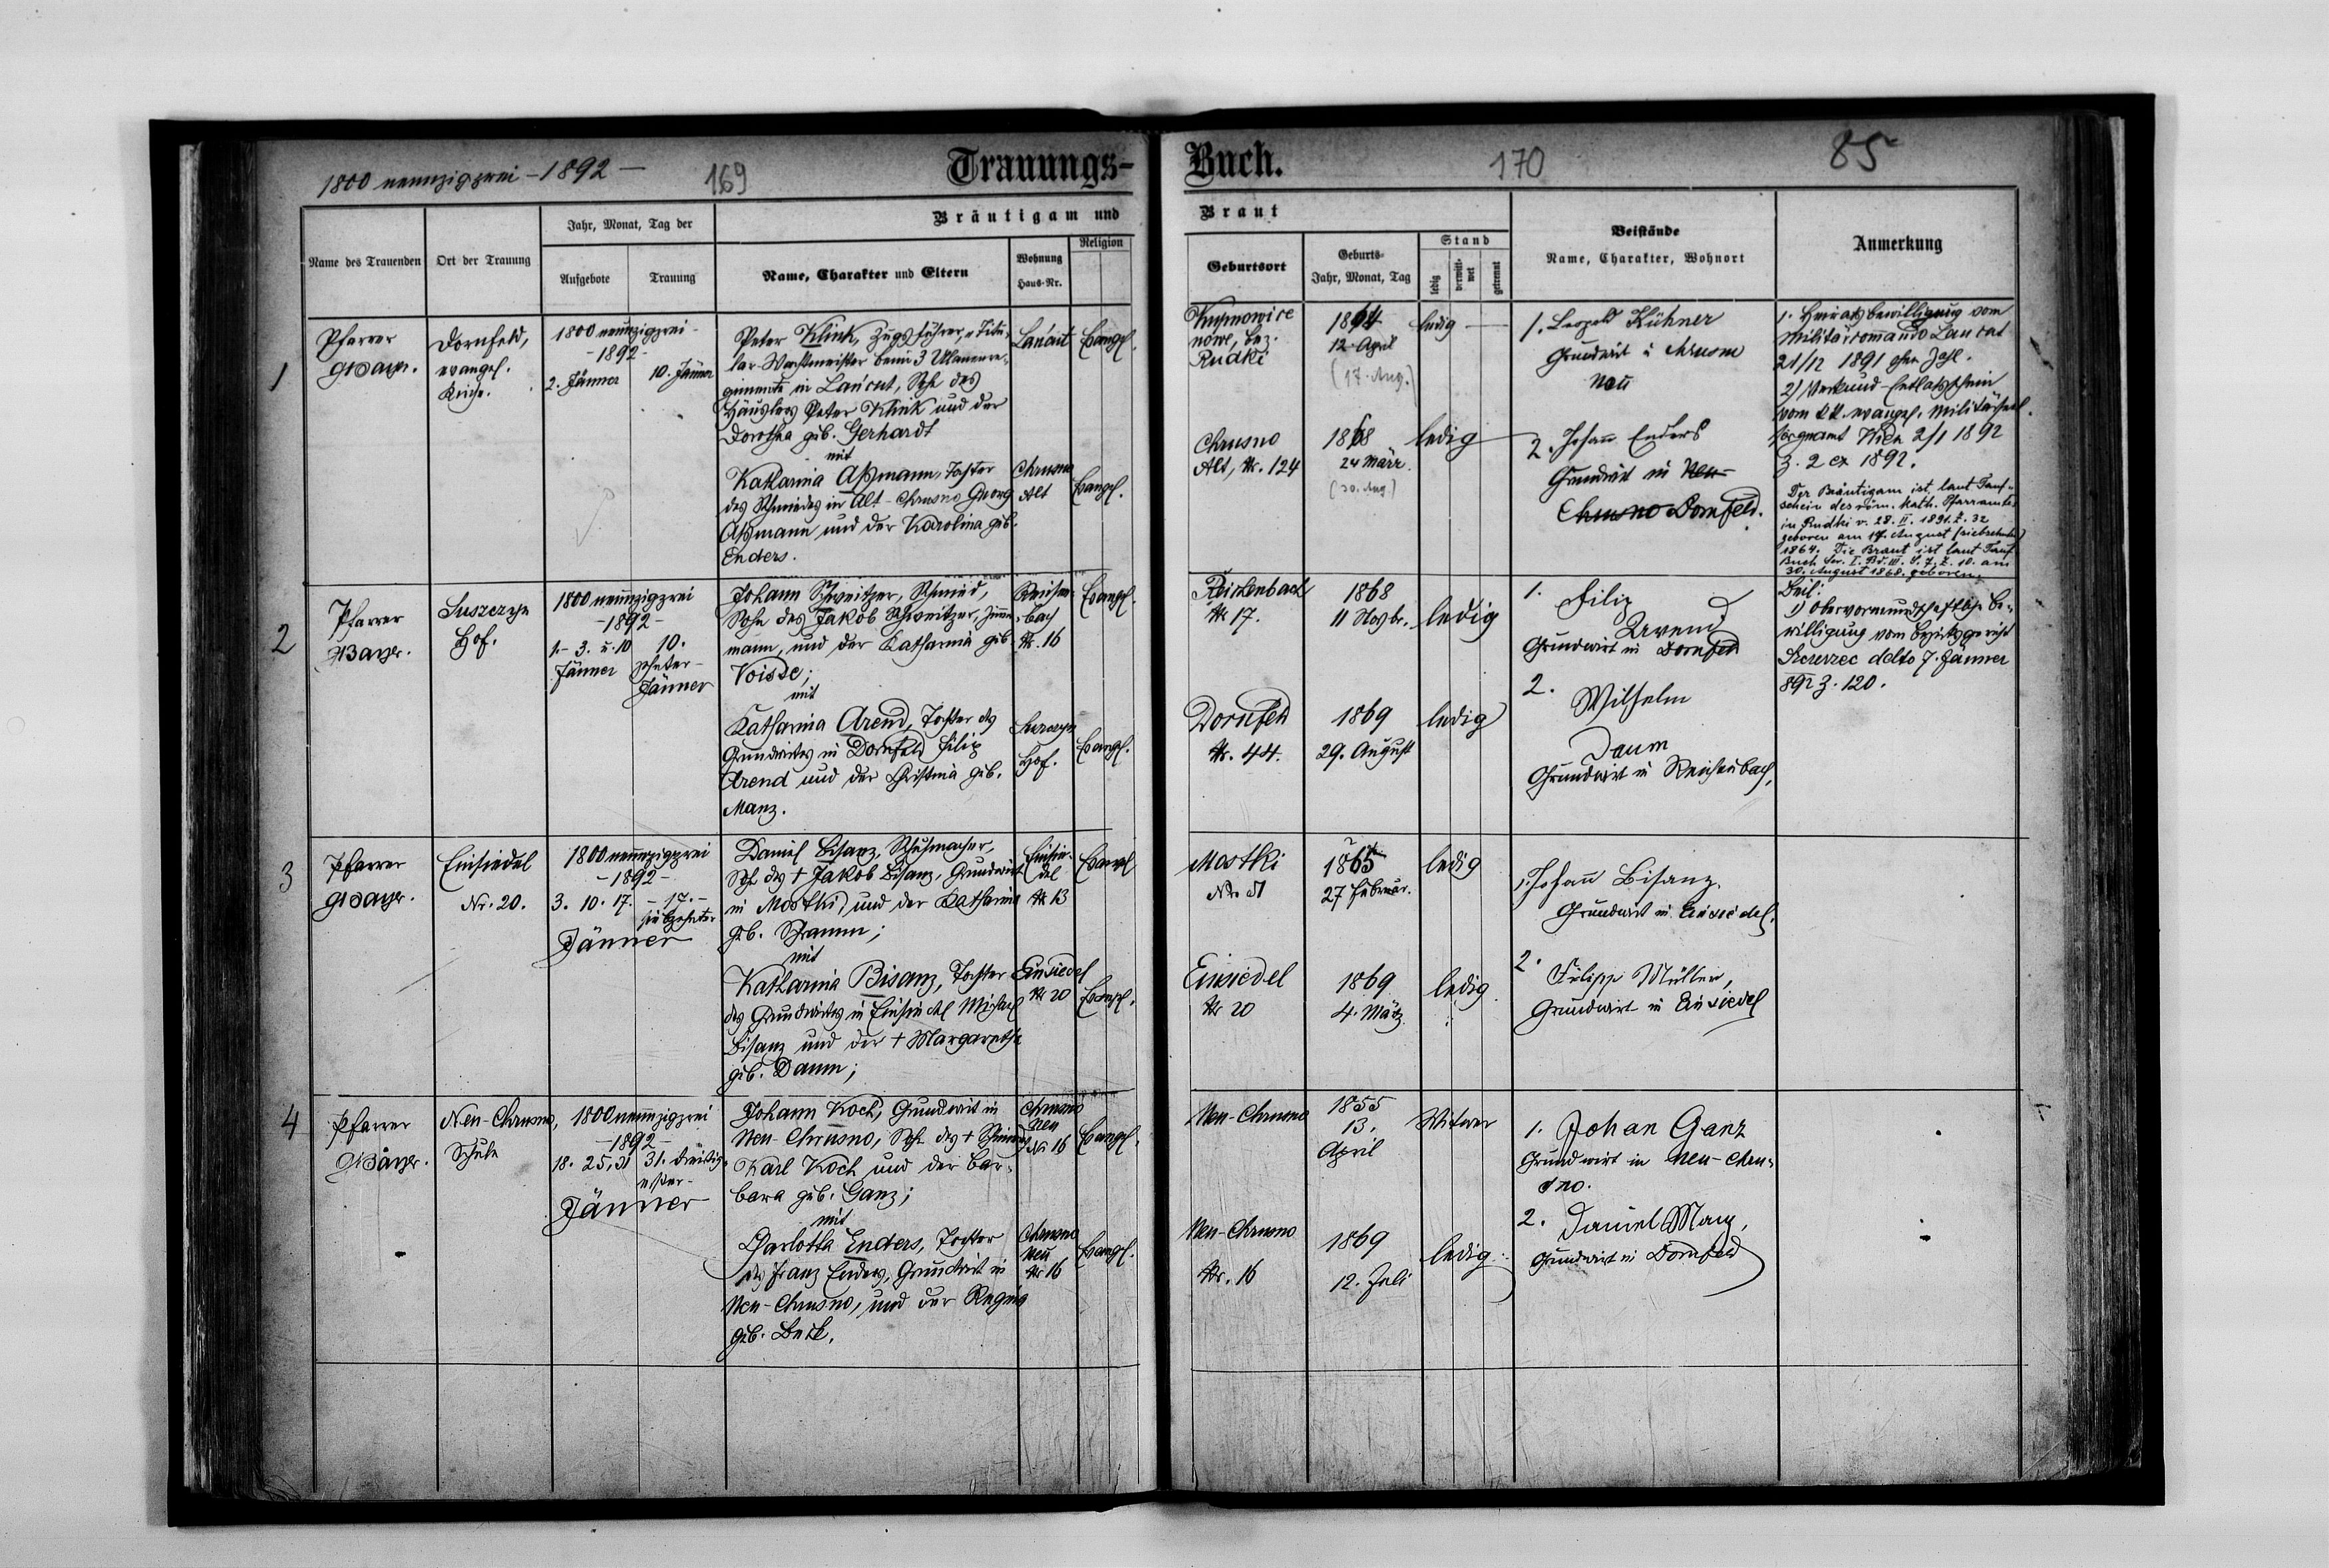 1800 neunzigzwei - 1892 -
169
Trauungs-
Name des Trauenden
Ort der Trauung
Jahr, Monat, Tag der
Aufgebote
Trauung
Bräutigam und
Name, Charakter und Eltern
Wohnung
Haus-Nr.
Religion
1
Pfarrer
Dornfeld,
evangel.
Kirche.
1800 neunzigzwei
- 1892 -
2. Jänner
10. Jänner
Peter Klink, Zugsführer, Titu-
lar-Wachtmeister beim 3 Uhlanenre-
gimente in Lańcut, Sohn des
Häuslers Peter Klink und der
Dorothea geb. Gerhardt
mit
Katharina Aßmann, Tochter
des Schmiedes in Alt-Chrusno Georg
Aßmann und der Karolina geb.
Enders.
Lańcut
Evangel.
Chrusno
Alt
Evangel.
2
Pfarrer
Suszczyn
Hof.
1800 neunzigzwei
- 1892 -
1. 3. u. 10
Jänner
10.
zehnter
Jänner
Johann Schweitzer, Schmied,
Sohn des Jakob Schweitzer, Zimmer-
mann, und der Katharina geb.
mit
Katharina Arend, Tochter des
Grundwirtes in Dornfeld Filip
Arend und der Christina geb.
Manz.
Reichen-
bach
Nr. 16
Evangel.
Hof.
Evangel.
3
Pfarrer
Einsiedel
Nr. 20.
1800 neunzigzwei
- 1892 -
3. 10. 17.
- 17. -
siebzehnter
Jänner
Daniel Bisanz, Schuhmacher,
Sohn des † Jakob Bisanz, Grundwirt
in Mostki, und der Katharina
geb. Schramm;
mit
Katharina Bisanz, Tochter
des Grundwirtes in Einsiedel Michael
Bisanz und der † Margaretha
geb. Daum;
Einsie-
del
Nr 13
Evangel
Einsiedel
Nr 20
Evangel.
4
Pfarrer
Neu-Chrusno,
Schule
1800 neunzigzwei
- 1892 -
18. 25, 31
31. dreißig-
erster
Jänner
Johann Koch, Grundwirt in
Neu-Chrusno, Sohn des †
Karl Koch und der Bar-
bara geb. Ganz;
mit
Charlotta Enders, Tochter
des Franz Enders, Grundwirt in
Neu-Chrusno, und der Regina
geb. Beck.
Chrusno
Neu
Nr 16
Evangel.
Chrusno
Neu
Nr 16
Evangel.
Buch.
170
85
Braut
Geburtsort
Geburts-
Jahr, Monat, Tag
Stand
ledig
verwitt-
wet
getrennt
Beistände
Name, Charakter, Wohnort
Anmerkung
nowe, Bez.
Rudki
1864
12. April
(17. Aug.)
ledig
1. Leopold Kühner
Grundwirt in Chrusno
neu
1. Heiratsbewilligung vom
Militärcommando Lancut
21/12 1891 ohne Zahl.
2) Verkünd-Entlaßschein
vom kk. evangel. Militärseel-
sorgeamt Wien 2/1 1892
Z. 2 ex 1892.
Der Bräutigam ist laut Tauf-
schein des röm. kath. Pfarramtes
in Rudki v. 28. II. 1891. Z. 32
geboren am 17. August (siebzehnten)
1864. Die Braut ist laut Tauf-
Buch Ser. I. Bd. III. S. 7. Z. 10. am
30. August 1868. geboren.
Chrusno
Alt, Nr. 124
1868
24 März
(30. Aug.)
ledig
2. Johann Enders
Grundwirt in Neu-
Chrusno Dornfeld.
Reichenbach
Nr 17.
1868
11 Novbr.
ledig
1. Filip
Arend
Grundwirt in Dornfeld
Beil:
1) Obervormundschaftliche Be-
willigung vom Bezirksgericht
Szczerzec ddto 7. Jänner
892 Z. 120.
Dornfeld
Nr. 44.
1869
29. August
ledig
2. Wilhelm
Daum
Grundwirt in Reichenbach.
Mostki
1865
27 Februar.
ledig
1. Johann Bisanz.
Grundwirt in Einsiedel.
Einsiedel
Nr 20
1869
4. März
ledig
2. Filipp Müller,
Grundwirt in Einsiedel
Neu-Chrusno
1855
13.
April
Witwer
1. Johan Ganz
Grundwirt in Neu-Chru-
sno.
Neu-Chrusno
Nr. 16
1869
12. Juli
ledig
2. Daniel Manz,
Grundwirt in Dornfeld